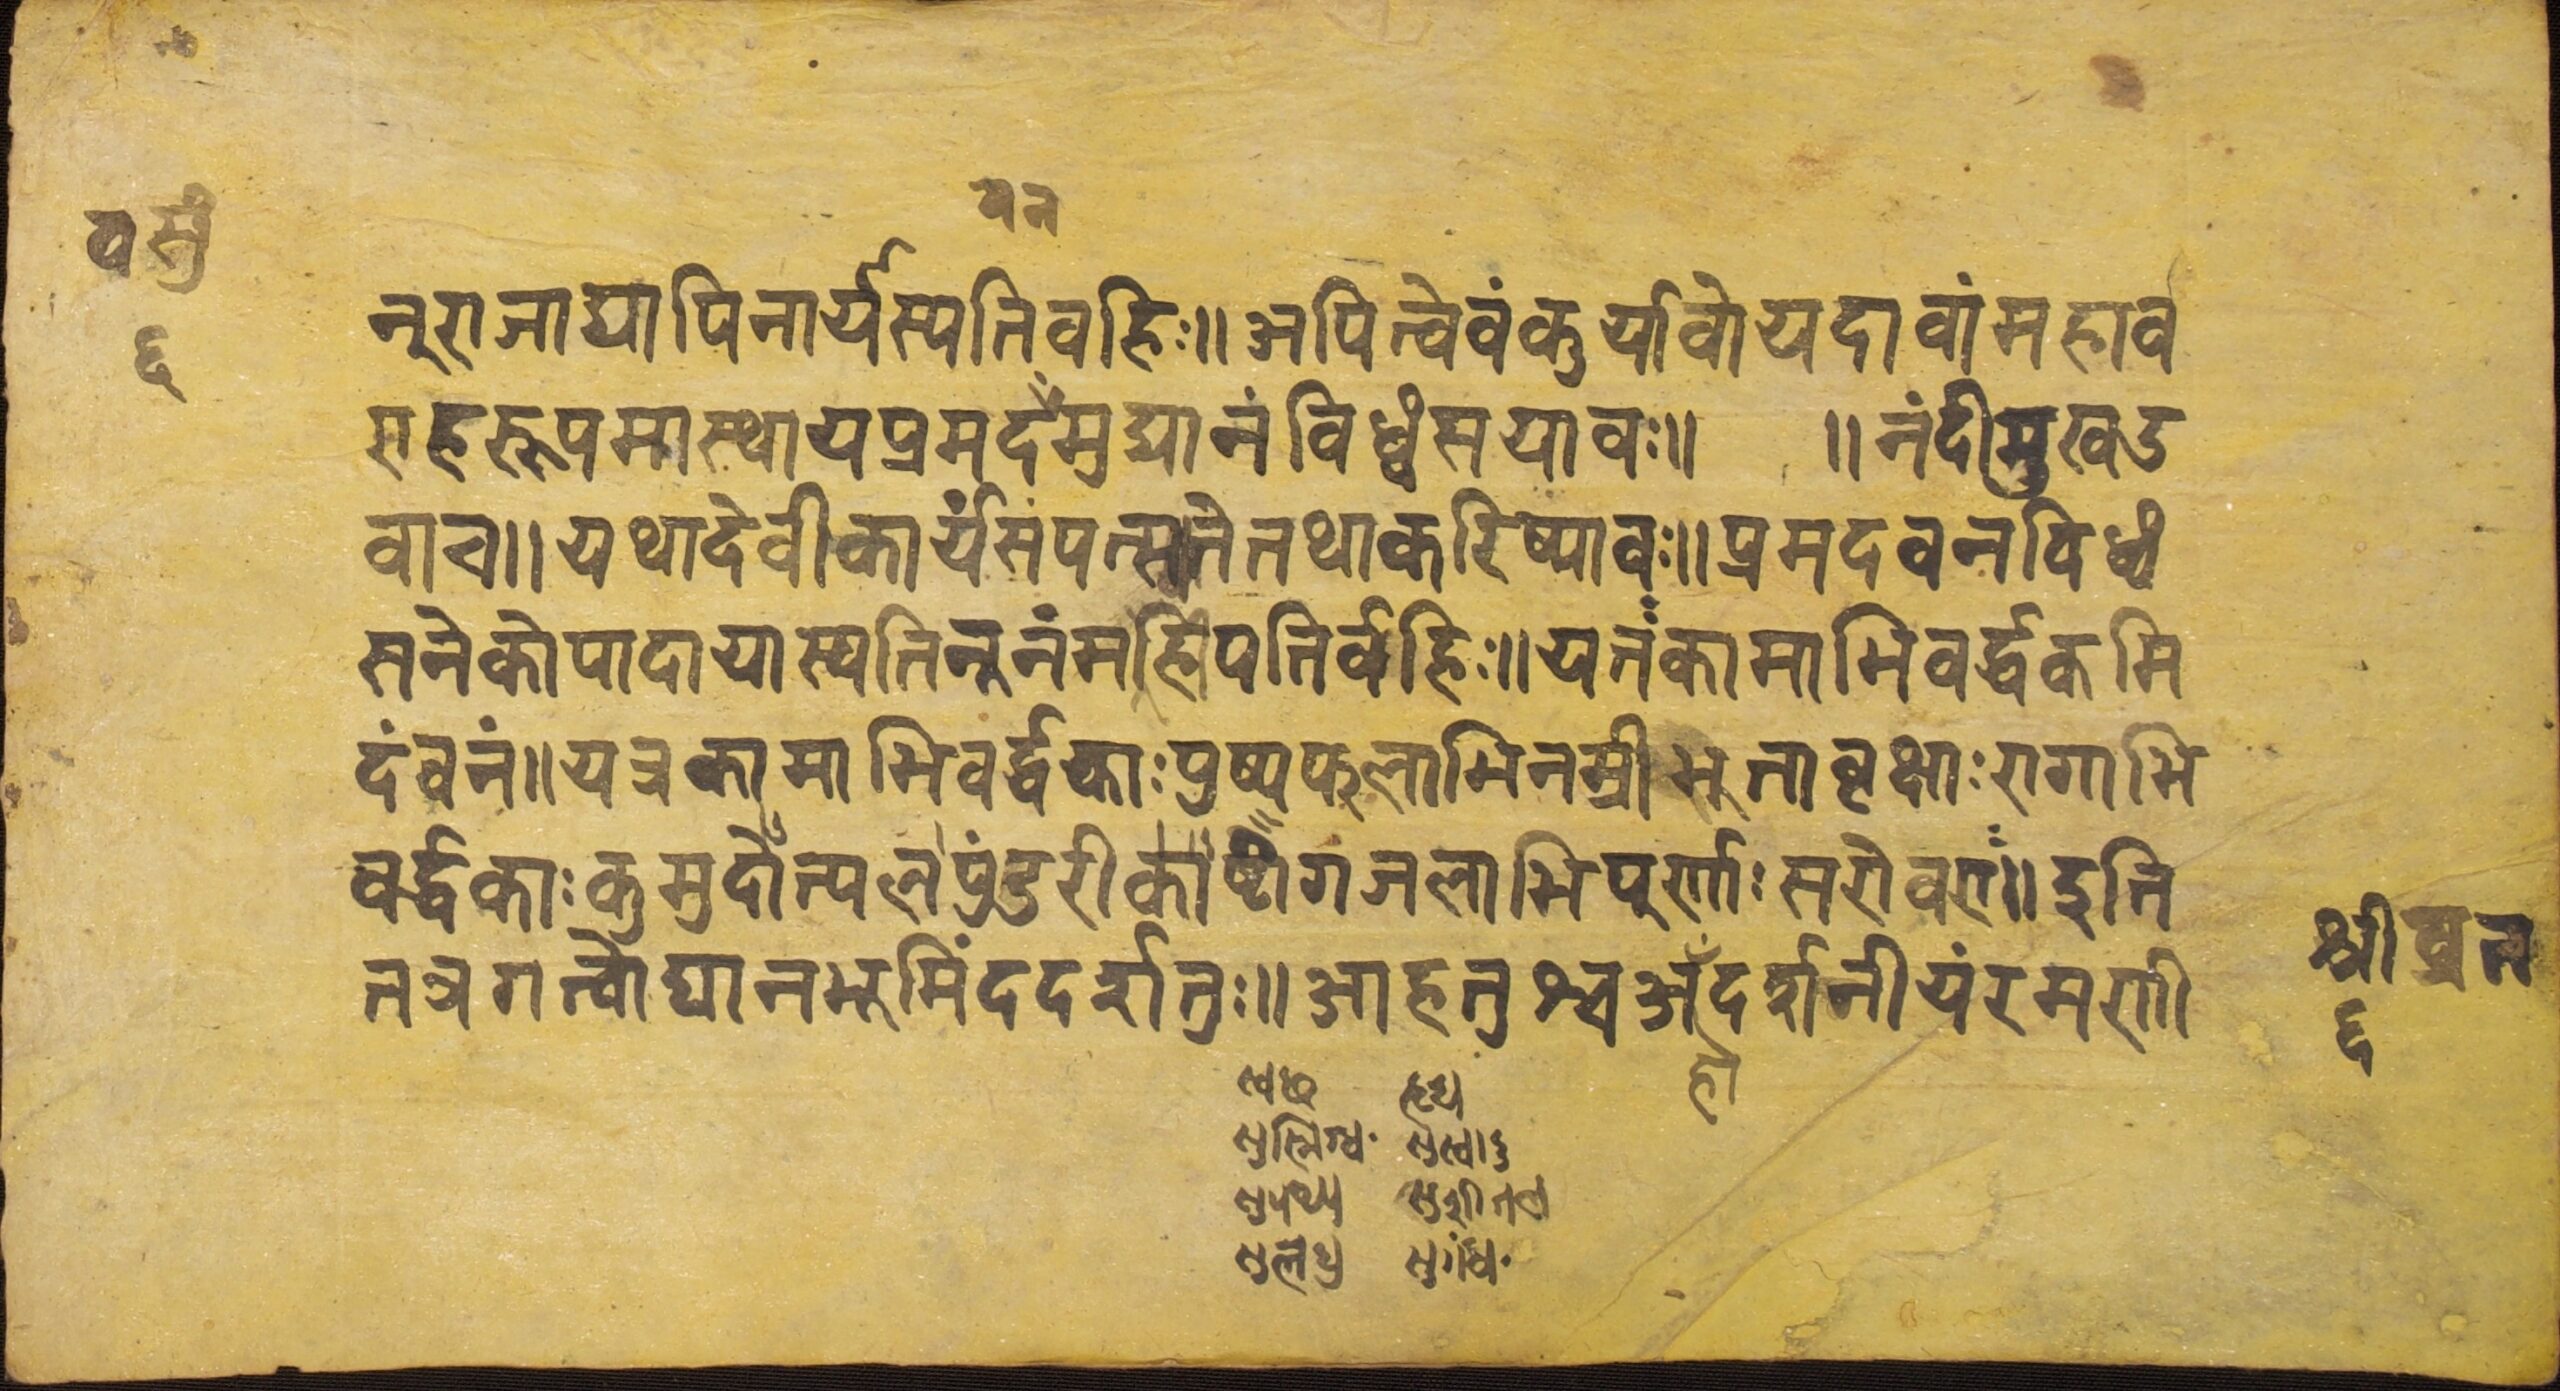 यन
वसुं
६
नुराजाद्यापिनार्यस्पतिवहिः॥अपित्वेवंकुर्यावोयदावांमहाव
राहरूपमास्थायप्रमदँमुद्यानंविध्वंसयावः॥ ॥नंदीमुखउ
वाच॥यथादेवीकार्यंसंपत्स्यतेतथाकरिष्यावः॥प्रमदवनविध्वं
सनेकोपादायास्यतिनूनंमहिपतिर्वहिः॥यतंकामाभिवर्द्धकमि
दंवनं॥यत्रकामाभिवर्द्धकाःपुष्पफलाभिनम्रीभूतावृक्षाःरागाभि
वर्द्धकाःकुमुदोत्पलपुंडरीकाष्टांगजलाभिपूर्णाःसरोवराः॥इति
तत्रगत्वोद्यानभूमिंददर्शतुः॥आहतुश्चअँदर्शनीयंरमणी
श्रीवन
६
हो
सुस्निग्ध सुस्वादु
सुपथ्य सुशीतल
सुलघु सुगंध